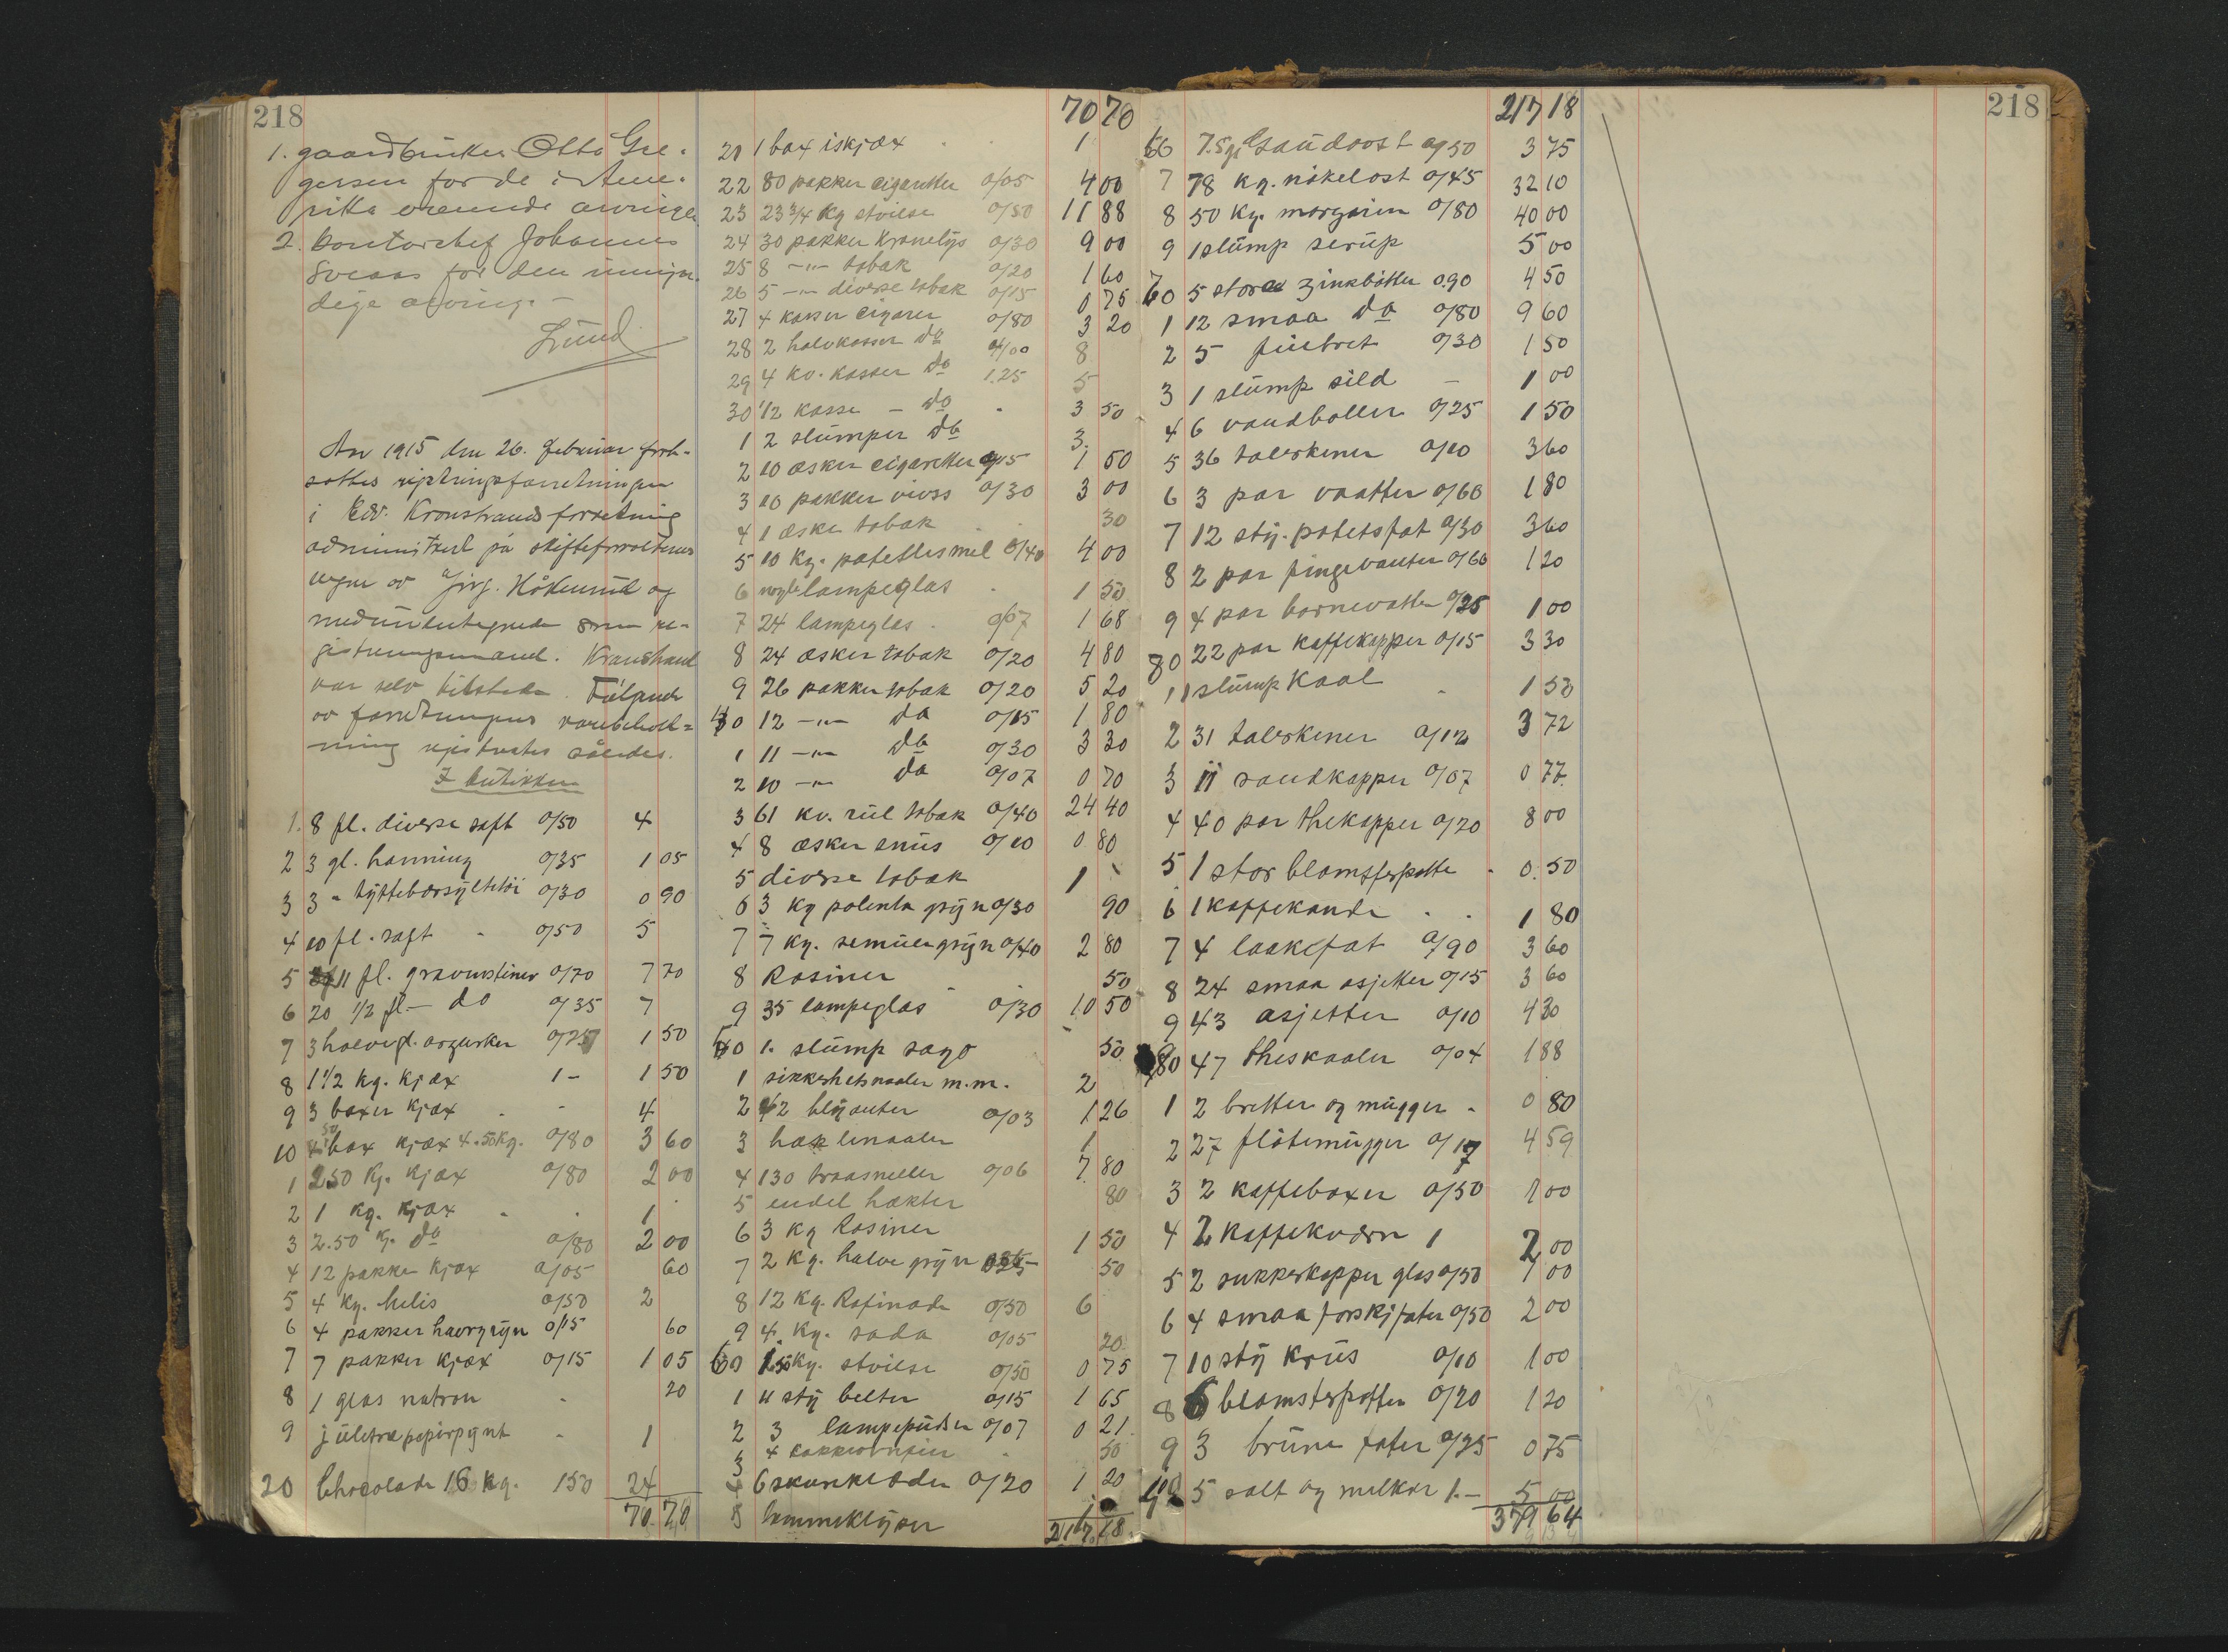 218
1. gaardbruker Otto Gre-
gersen for de i Ame-
rikka værende arvinger
2. kontorchef Johannes
Sveaas for den umyn-
dige arving. —
Lund
Aar 1915 den 26. februar fort-
sattes registringsforretningen
i Edv. Kronstrands forretning
administrert på skifteforvalterens
vegne av
medundertegnede som re-
gistreringsmand. Kranstrand
var selv tilstede. Følgende
av forretningens varebehold=
ning registrertes således.
I butikken
1. 8 fl. diverse saft 0/50 4
2 3 gl. hanning 0/35 1 05
3 3 " tyttebærsyltetöi 0/30 0 90
4 10 fl. saft - 0/50 5
5 11 fl. gravensteiner 0/70 7 70
6 20 1/2 fl. — do 0/35 7
7 3 halvegl. asgurker 1 50
8 1 1/2 kg. kjæx 1- 1 50
9 3 boxer kjæx . - 4
10 box kjæx 4.50 kg. 0/80 3 60
1 2.50 kg. kjæx 0/80 2 00
2 1 kg. kjæx - . 1
3 2.50 kg. do 0/80 2 00
4 12 pakker kjæx 0/05 60
5 4 kg. melis 0/50 2
6 4 pakker havregryn 0/15 60
7 7 pakker kjæx 0/15 1 05
8 1 glas natron - 20
9 juletræpapirpynt - 1
20 Chocolade 16 kg. 150 24
70 70
70 70
21 1 box iskjæx . . 1
22 80 pakker cigaretter 0/05 4 00
23 23 3/4 kg stivelse 0/50 11 88
24 30 pakker Kronelys 0/30 9 00
25 8 —"— tobak 0/20 1 60
26 5 —"— diverse tobak 0/15 0 75
27 4 kasser cigarer 0/80 3 20
28 2 halvkasser do 4/00 8
29 4 kv. kasser do 1.25 5
30 1/2 kasse — do . 3 50
1 2 slumper do 3.
2 10 æsker cigaretter 0/15 1 50
3 10 pakker virss 0/30 3 00
4 1 æske tobak . . 30
5 10 kg. potetesmel 0/40 4 00
6 nogle lampeglas . 1 50
7 24 lampeglas . 0/07 1 68
8 24 æsker tobak 0/20 4 80
9 26 pakker tobak 0/20 5 20
40 12 —"— do 0/15 1 80
1 11 —"— do 0/30 3 30
2 10 —"— do 0/07 0 70
3 61 kv. rul tobak 0/40 24 40
4 8 æsker snus 0/10 0 80
5 diverse tobak 1
6 3 kg polenta gryn 0/30 90
7 7 kg. semulegryn 0/40 2 80
8 Rosiner - 50
9 35 lampeglas 0/30 10 50
50 1. slump sago 50
1 sikkerhetsnaaler m.m. 2
2 42 blyanter 0/03 1 26
3 hæklenaaler 1
4 130 traasneller 0/06 7 80
5 endel hækter 80
6 3 kg Rosiner 1 50
7 2 kg. halve gryn 50
8 12 kg. Rafinade 0/50 6
9 4. kg. soda 0/05 20
60 1.50 kg. stvilse 0/50 0 75
1 11 sty belter 0/15 1 65
2 3 lampepudser 0/07 0 21
3 4 50
4 6 skureklæder 0/20 1 20
5 lommeklyper
217.18
217 18
66 7.5 kg Gaudaost 0/50 3 75
7 78 kg. nökelost 0/45 32 10
8 50 kg. margarin 0/80 40 00
9 1 slump serup 5 00
70 5 store zinkbötter 0.90 4 50
1 12 smaa do 0/80 9 60
2 5 fiirbret 0/30 1 50
3 1 slump sild — 1 00
4 6 vandboller 0/25 1 50
5 36 talerkener 0/10 3 60
6 3 par vaatter 0/60 1 80
7 12 sty. potetsfat 0/30 3 60
8 2 par fingevanter 0/60 1 20
9 4 par barnevatter 0/25 1 00
80 22 par kaffekopper 0/15 3 30
1 1 slump Kaal . 1 50
2 31 talerkener 0/12 3 72
3 11 sandkopper 0/07 0 77
4 40 par thekopper 0/20 8 00
5 1 stor blomsterpotte - 0.50
6 1 kaffekande . . 1 80
7 4 laakefat 0/90 3 60
8 24 smaa asjetter 0/15 3 60
9 43 asjetter 0/10 4 30
90 47 theskaaler 0/04 1 88
1 2 bretter og mugger - 0 80
2 27 flötemugger 0/17 4 59
3 2 kaffeboxer 0/50 1 00
4 2 kaffekværn 1 2 00
5 2 sukkerkopper glas 0/50 1 00
6 4 smaa forskj fater 0/50 2 00
7 10 sty krus 0/10 1 00
8 6 blomsterpotter 0/20 1 20
9 3 brune fater 0/25 0 75
5 salt og melkar 1.— 5 00
379 64
218